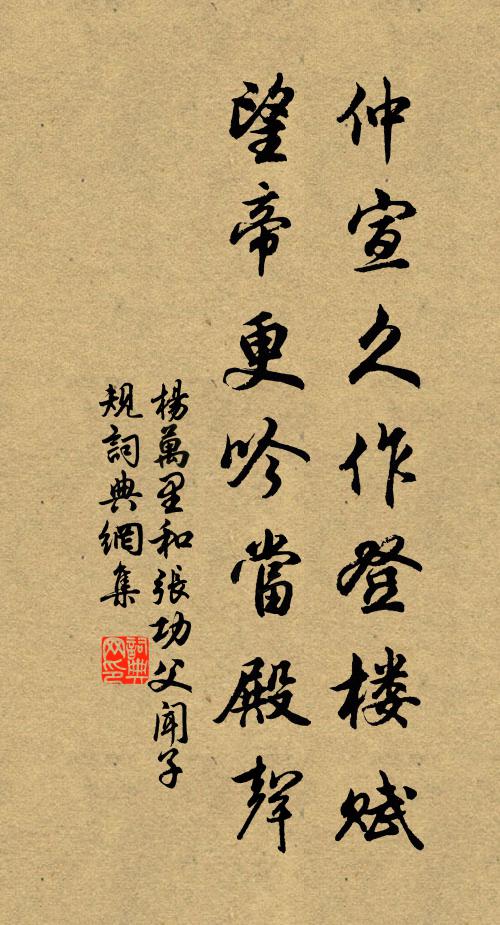 仲宣久作登楼赋
望帝更吟當殿聲
楊萬里和張功父聞子
規詞典網集
詞典
网印